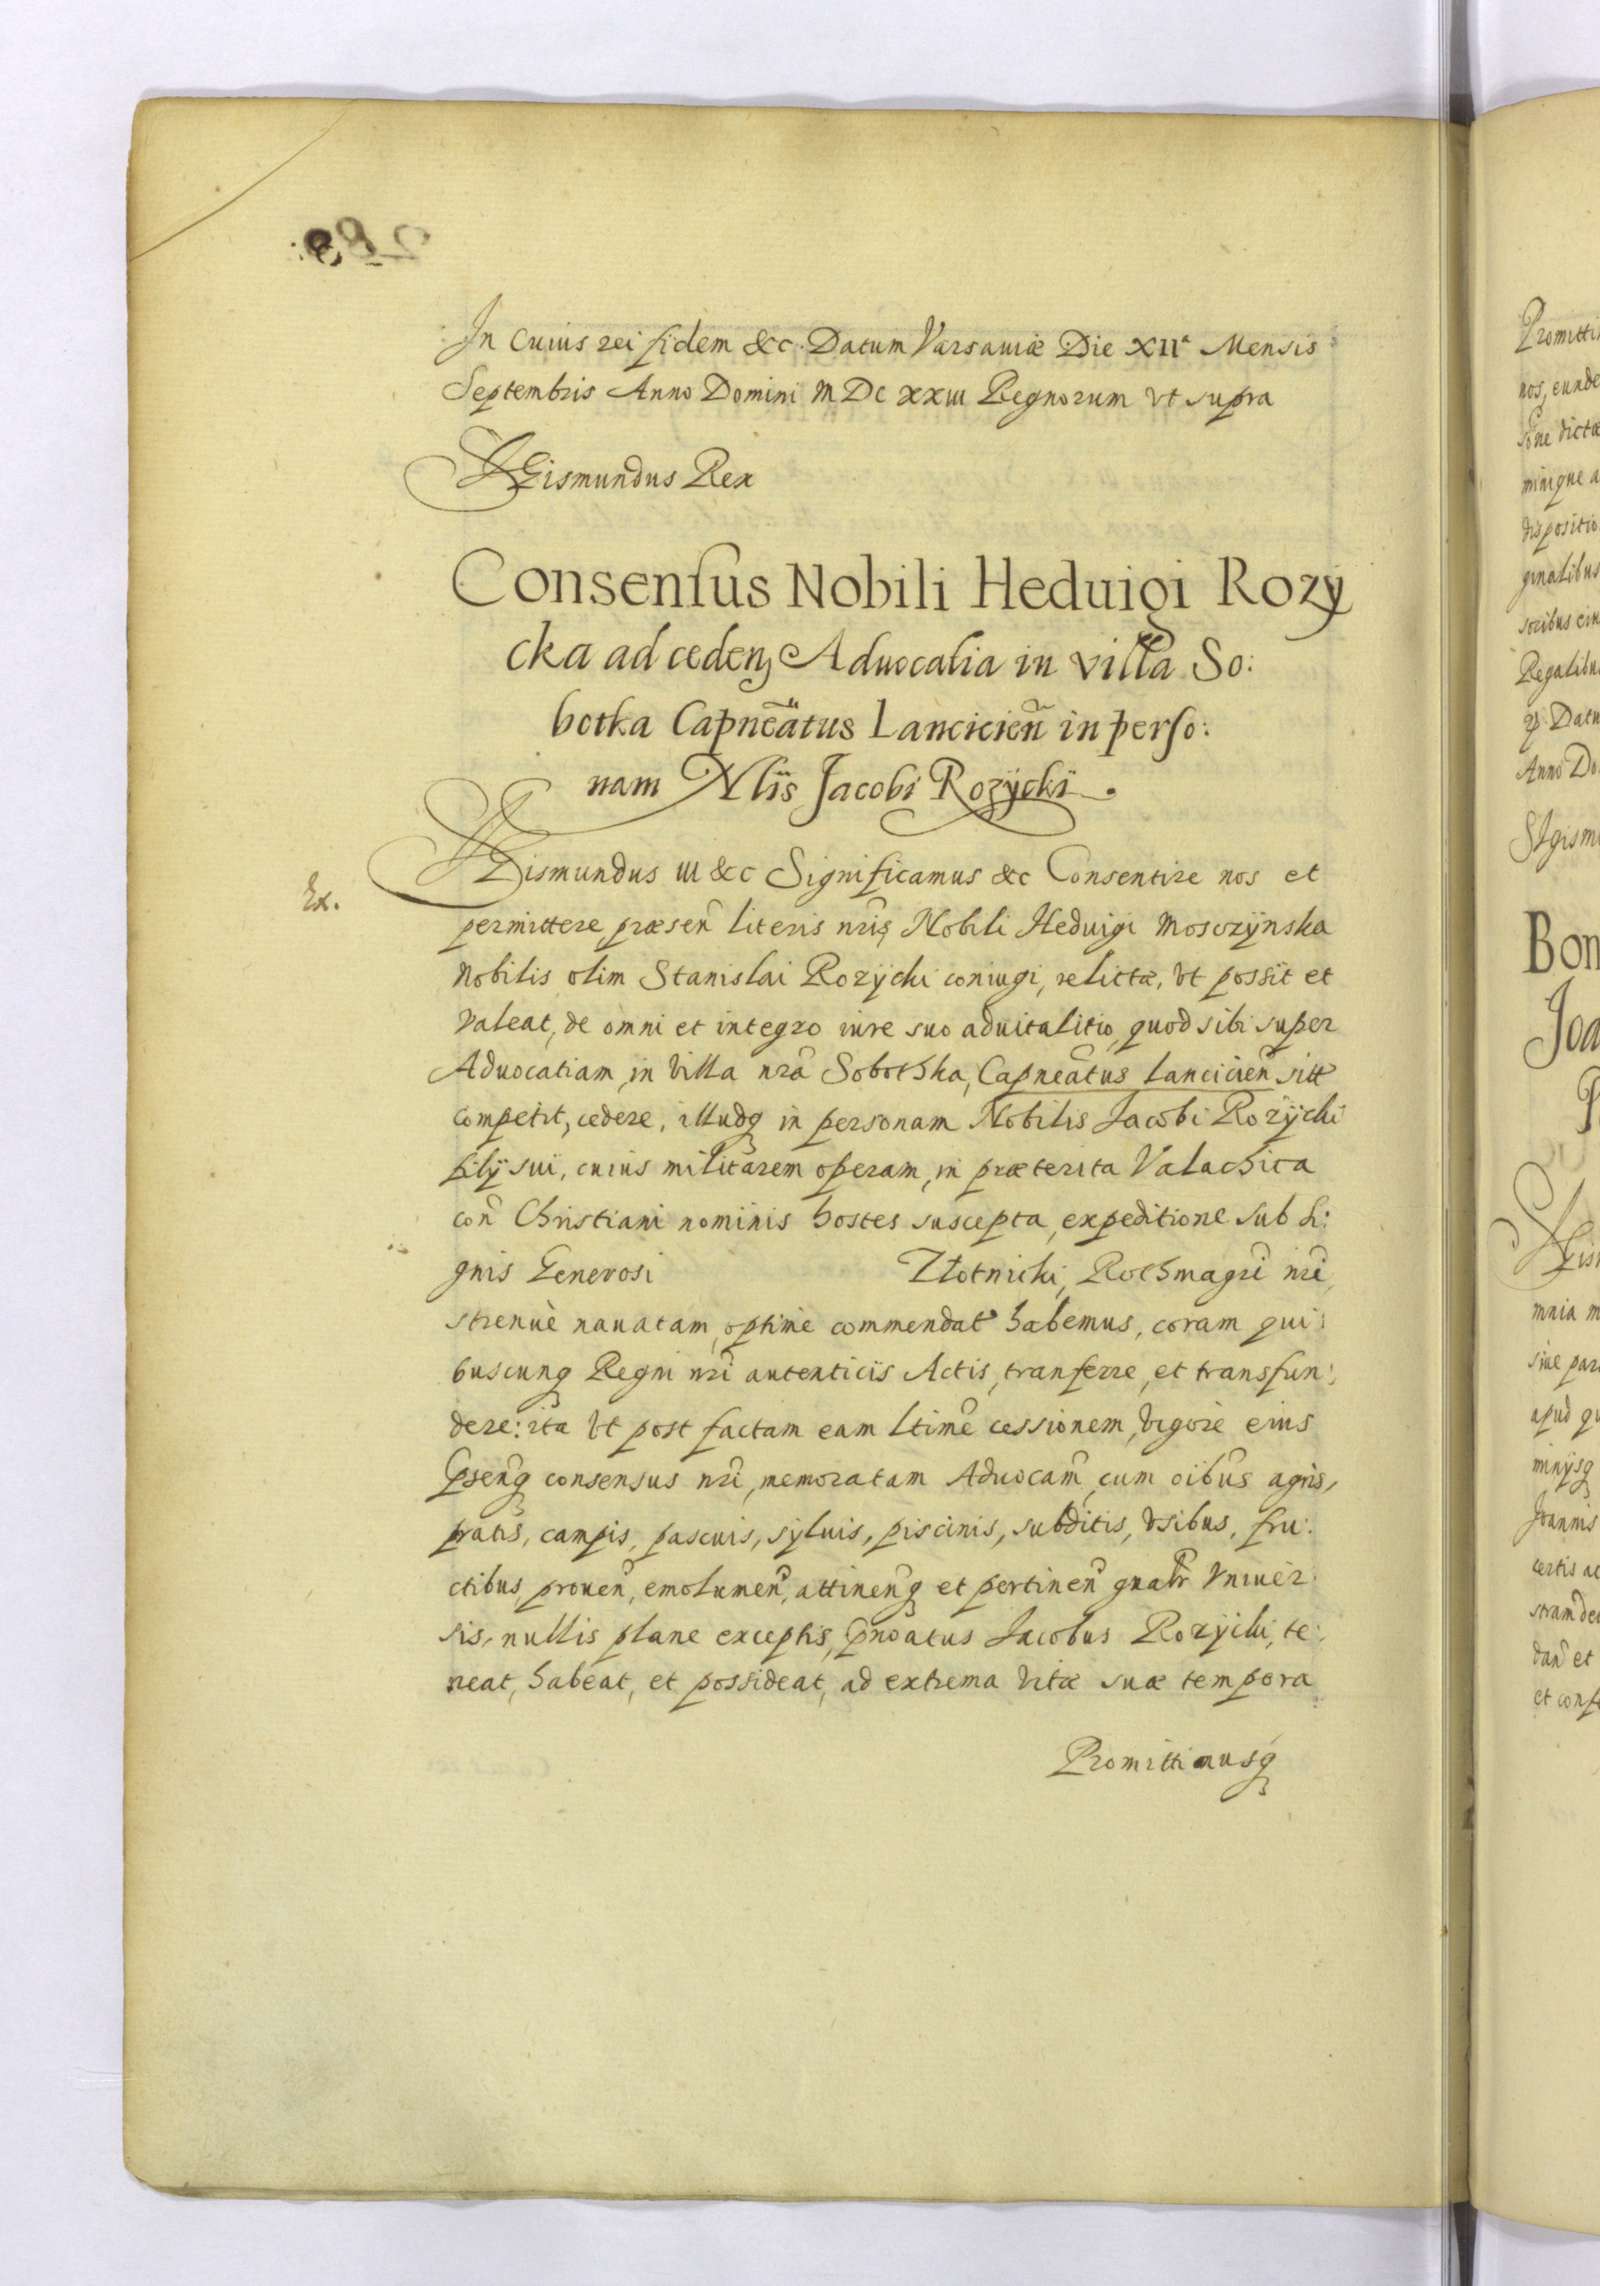 In cuius rei fidem &c. Datum Varsauiæ Die XIIa Mensis
Septembris Anno Domini MDCXXIII Regnorum vt supra
SIgismundus Rex
Consensus Nobili Heduigi Rozy
cka ad ceden Aduocatia in villa So:
botka Capneãtus Lancicien in perso:
nam Nlis Jacobi Rozÿcki.
Ex.
SIgismundus III &c Significamus &c Consentire nos et
permittere præsen literis nris, Nobili Heduigi Moszczÿnska
Nobilis olim Stanislai Rozÿcki coniugi, relictæ, vt possit et
valeat, de omni et integro iure suo aduitalitio, quod sibi super
Aduocatiam in villa nra Sobothka, Capneatus Lancicien sitt
competit, cedere, illudq in personam Nobilis Jacobi Rozÿcki
filÿ sui, cuius militarem operam, in præterita Valachica
con Christiani nominis hostes suscepta, expeditione sub si:
gnis Generosi Złotnicki, Rothmagri nri,
strenuè nauatam, optime commendat habemus, coram qui:
buscunq Regni nri autenticis Actis, tranferre, et transfun:
dere: ita vt post factam eam ltime cessionem, vigore eius
pseñq consensus nri, memoratam Aduocam, cum oibus agris,
pratis, campis, pascuis, syluis, piscinis, subditis, vsibus, fru:
ctibus, prouen, emolumen, attinenq et pertinen gnalr vniuer:
sis, nullis plane exceptis, pnoatus Jacobus Rozÿcki, te:
neat, habeat, et possideat, ad extrema vitæ suæ tempora
Promittimusq
Promitti
nos, eunde
minique a
dispositio
ginalibus
Regalibu
Anno Do
SIgism
Bon
Joa
mnia m
siue par
apud qu
Joannis
certis ac
dan et
et conf